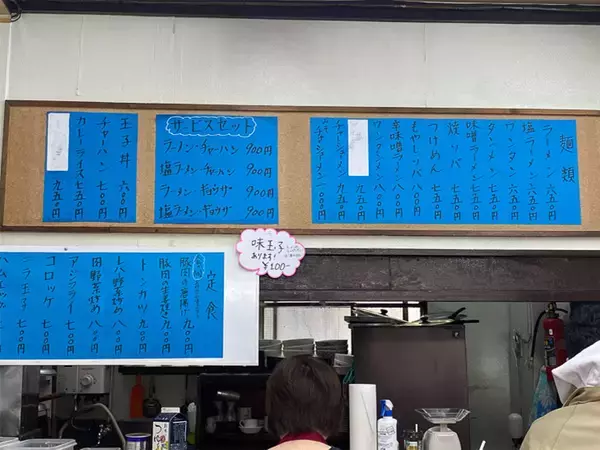 麺類
ラーメン 六五〇円
塩ラーメン 六五〇円
ワンタン 六五〇円
タンメン 七五〇円
味噌ラーメン 七五〇円
焼ソバ 七五〇円
つけめん 七五〇円
もやしソバ 八〇〇円
辛味噌ラーメン 八〇〇円
ワンタンメン 八〇〇円
チャーシューメン 九五〇円
サービスセット
ラーメン・チャーハン 900円
塩ラーメン・チャーハン 900円
ラーメン・ギョウザ 900円
塩ラーメン・ギョウザ 900円
玉子丼 六〇〇円
チャーハン 七〇〇円
カレーライス 七五〇円
九五〇円
味玉子
あります!
¥100-
定食
豚肉の唐揚げ 九〇〇円
豚肉の生姜焼き 九〇〇円
トンカツ 九〇〇円
レバ野菜炒め 八〇〇円
肉野菜炒め 八〇〇円
アジフライ 七五〇円
コロッケ 七〇〇円
ニラ玉子 七〇〇円
ハムエッグ 七〇〇円